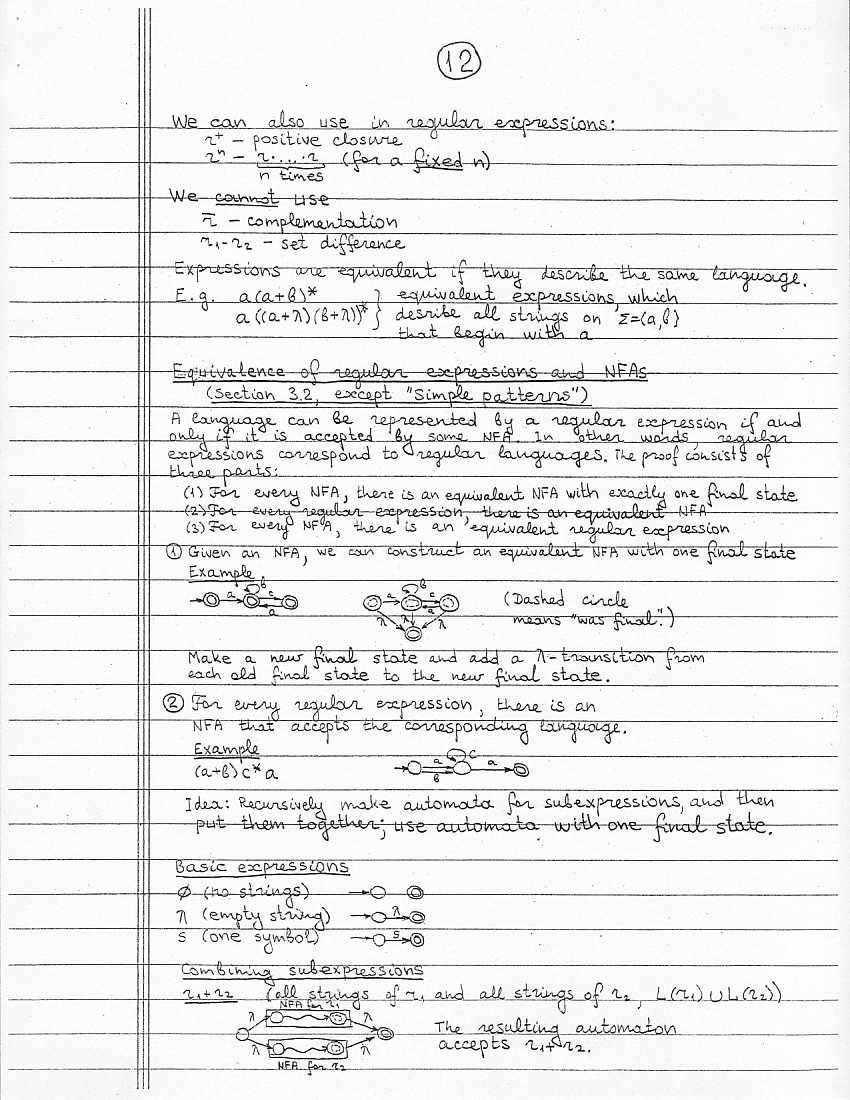 12
We can also use in regular expressions:
r⁺ – positive closure
rⁿ – r·...·r (for a fixed n)
n times
We cannot use
r̅ – complementation
r₁-r₂ – set difference
Expressions are equivalent if they describe the same language.
E.g. a(a+b)* } equivalent expressions, which
a((a+λ)(b+λ))* } desribe all strings on Σ={a,b}
that begin with a
Equivalence of regular expressions and NFAs
(Section 3.2, except "Simple patterns")
A language can be represented by a regular expression if and
only if it is accepted by some NFA. In other words, regular
expressions correspond to regular languages. The proof consists of
three parts:
(1) For every NFA, there is an equivalent NFA with exactly one final state
(2) For every regular expression, there is an equivalent NFA
(3) For every NFA, there is an equivalent regular expression
① Given an NFA, we can construct an equivalent NFA with one final state
Example
b b
a c a c (Dashed circle
a λ λ a λ means "was final".)
Make a new final state and add a λ-transition from
each old final state to the new final state.
② For every regular expression, there is an
NFA that accepts the corresponding language.
Example c
(a+b)c*a a a
b
Idea: Recursively make automata for subexpressions, and then
put them together; use automata with one final state.
Basic expressions
∅ (no strings)
λ (empty string) λ
s (one symbol) s
Combining subexpressions
r₁+r₂ (all strings of r₁ and all strings of r₂, L(r₁)∪L(r₂))
NFA for r₁
λ λ The resulting automaton
λ λ accepts r₁+r₂.
NFA for r₂